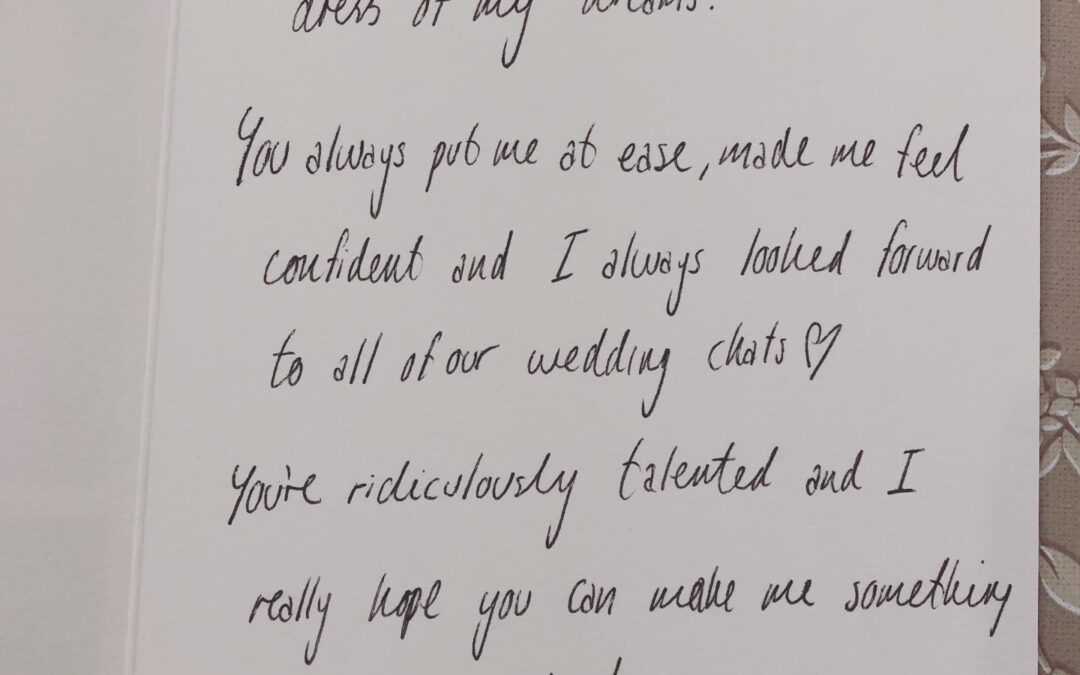 dress of my dreams!
You always put me at ease, made me feel
confident and I always looked forward
to all of our wedding chats ♡
You're ridiculously talented and I
really hope you can make me something